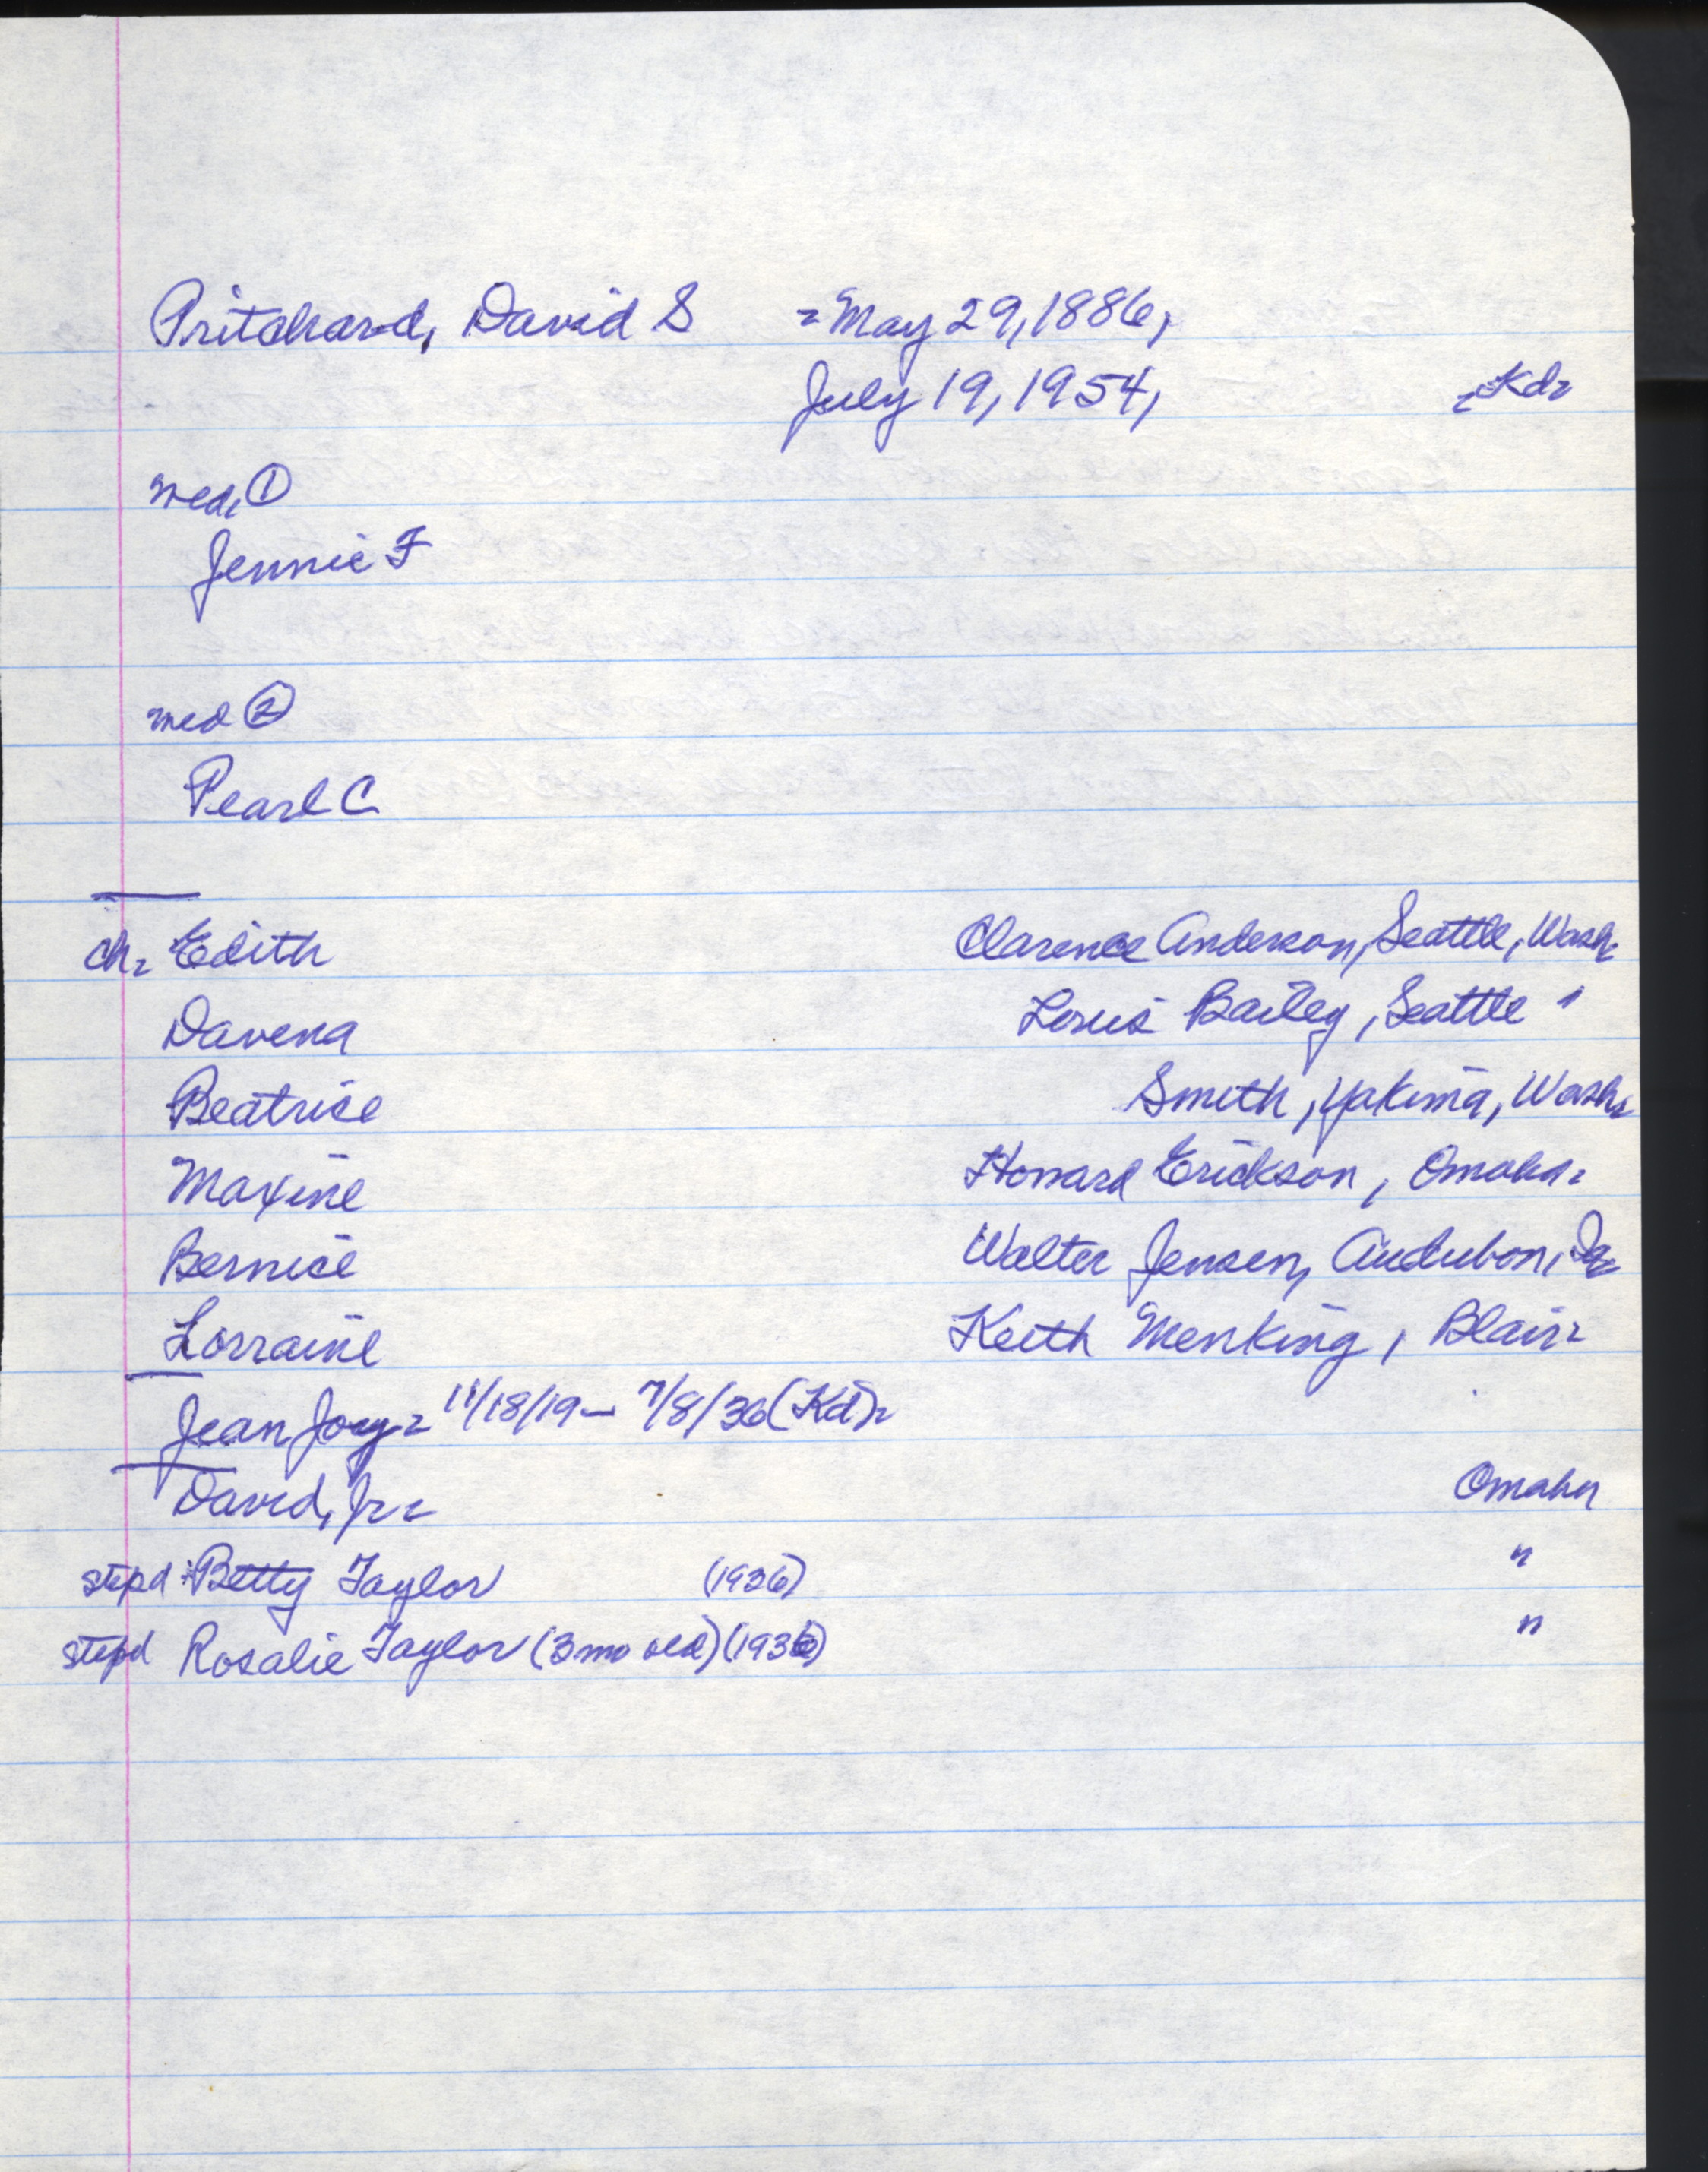 Pritchard, David S = May 29, 1886,
July 19, 1954, Kd.
med. ①
Jennie F
med ②
Pearl C
ch. Edith Clarence Anderson, Seattle, Wash.
Davena Louis Bailey, Seattle "
Beatrice Smith, Yakima, Wash.
Maxine Howard Erickson, Omaha.
Bernice Walter Jensen, Audubon, Ia
Lorraine Keith Menking, Blair.
Jean Joey. 11/18/19 - 7/8/36 (Kd).
David, Jr. Omaha
stepd Betty Taylor (1936) "
stepd Rosalie Taylor (3 mo old) (1936) "